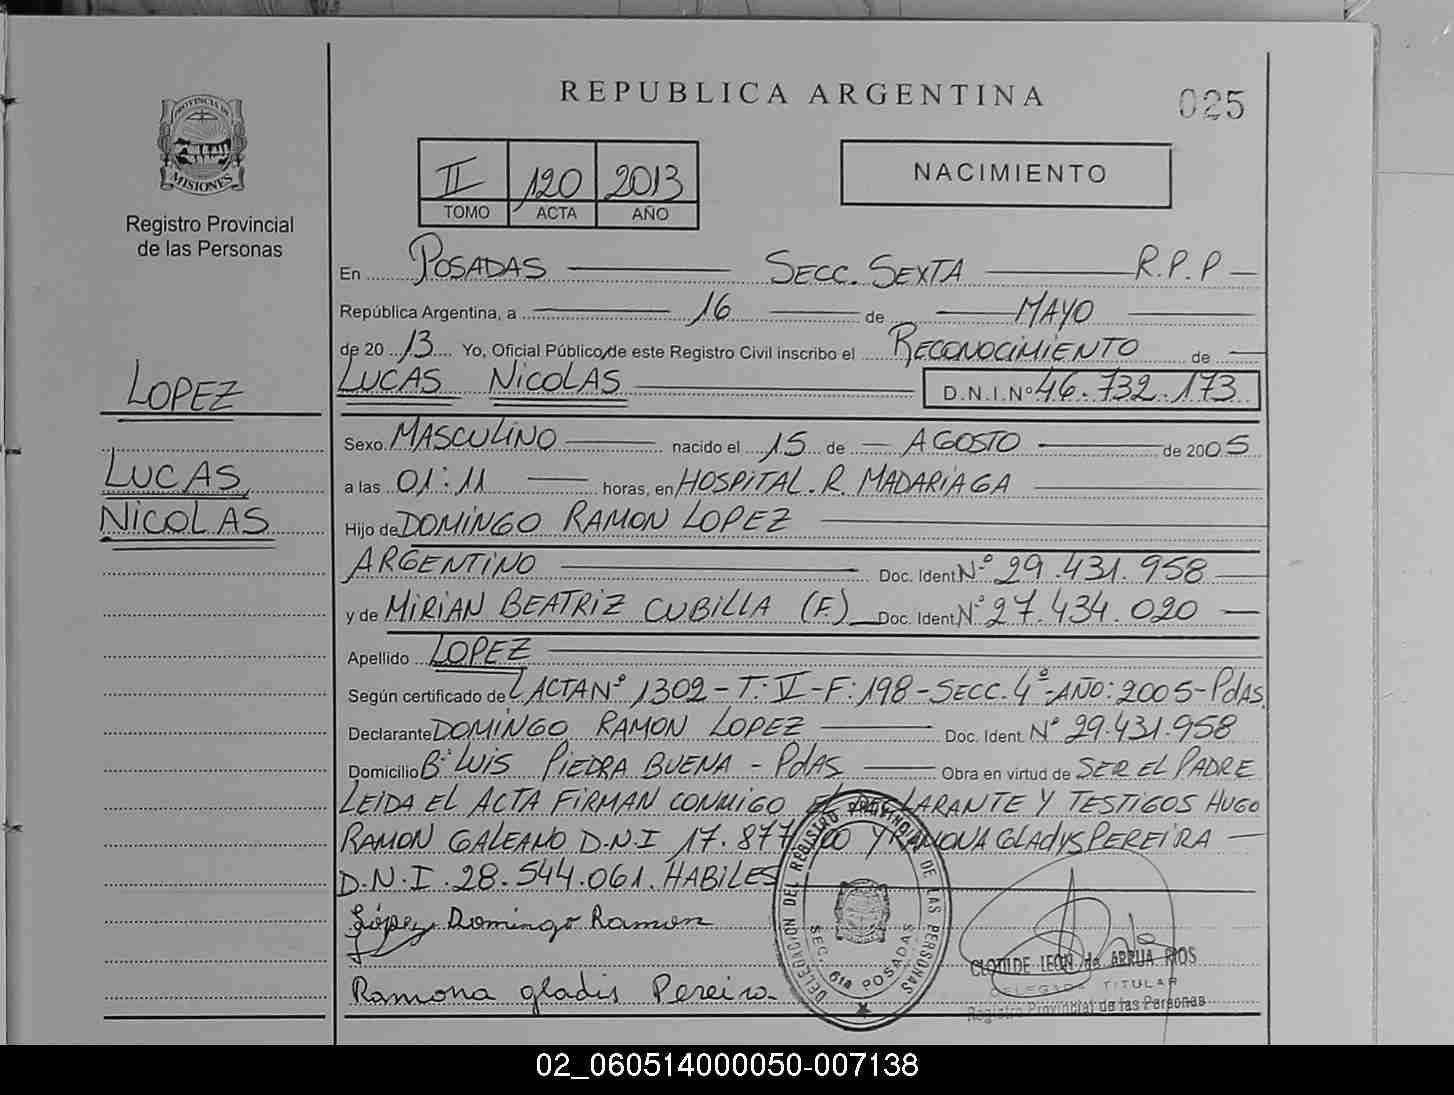 REPUBLICA ARGENTINA
025
PROVINCIA DE
MISIONES
Registro Provincial
de las Personas
II 120 2013
TOMO ACTA AÑO
NACIMIENTO
En POSADAS SECC. SEXTA R.P.P
República Argentina, a 16 de MAYO
de 20 13 Yo, Oficial Público de este Registro Civil inscribo el RECONOCIMIENTO de
LUCAS NICOLAS D.N.I. Nº 46.732.173
LOPEZ
LUCAS
NICOLAS
Sexo MASCULINO nacido el 15 de AGOSTO de 2005
a las 01:11 horas, en HOSPITAL. R. MADARIAGA
Hijo de DOMINGO RAMON LOPEZ
ARGENTINO Doc. Ident Nº 29.431.958
y de MIRIAN BEATRIZ CUBILLA (F.) Doc. Ident Nº 27.434.020
Apellido LOPEZ
Según certificado de ACTA Nº 1302-T: II-F:198-SECC. 4º-AÑO: 2005-PdAS.
Declarante DOMINGO RAMON LOPEZ Doc. Ident. Nº 29.431.958
Domicilio Bº LUIS PIEDRA BUENA - PdAS Obra en virtud de SER EL PADRE
LEIDA EL ACTA FIRMAN CONMIGO EL DECLARANTE Y TESTIGOS HUGO
RAMON GALEANO D.N.I 17.877 Y RAMONA GLADYS PEREIRA
D.N.I. 28.544.061. HABILES
López Domingo Ramon
Ramona gladis Pereira
DELEGACION DEL REGISTRO PROVINCIAL DE LAS PERSONAS
SEC. 6ta POSADAS
CLOTILDE LEON de ARRUA RIOS
DELEGADA TITULAR
Registro Provincial de las Personas
02_060514000050-007138